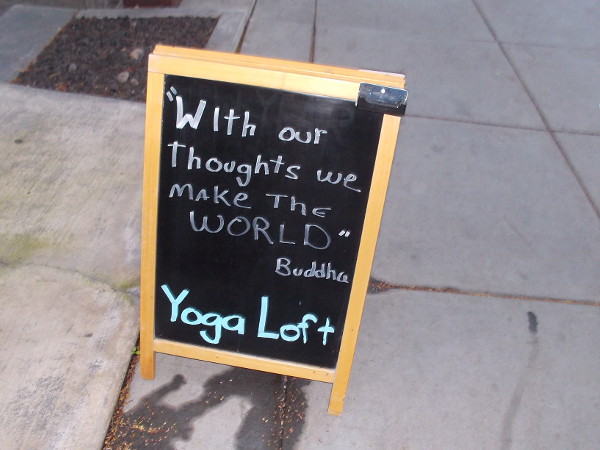 "With our
Thoughts we
MAKe The
WORLD"
Buddha
Yoga Loft